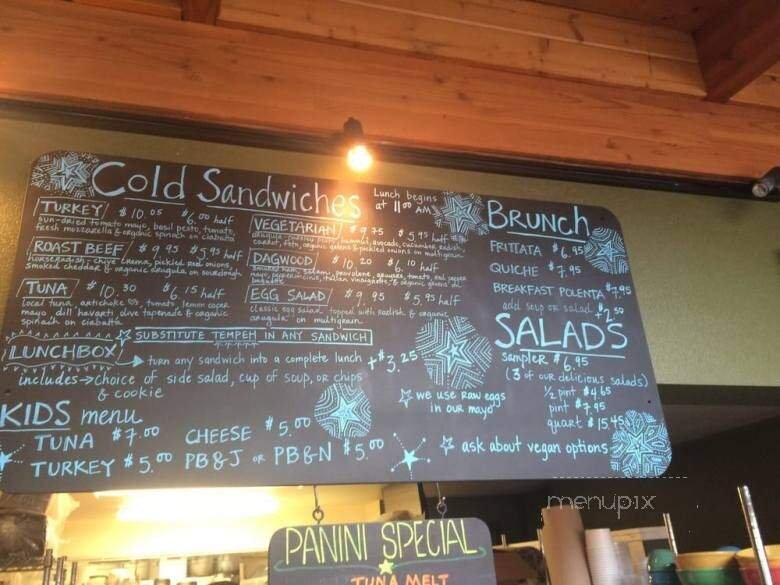 Cold Sandwiches
Lunch begins
at 11:00 AM
TURKEY $10.05 $6.00 half
sun-dried tomato mayo, basil pesto, tomato,
fresh mozzarella & organic spinach on ciabatta
ROAST BEEF $9.95 $5.95 half
horseradish-chive crema, pickled red onions
smoked cheddar & organic arugula on sourdough
TUNA $10.30 $6.15 half
local tuna, artichoke, tomato, lemon caper
mayo, dill havarti, olive tapenade & organic
spinach on ciabatta
VEGETARIAN $9.75 $5.95 half
hummus, avocado, cucumber,
carrot, organic greens & pickled onions on multigrain
DAGWOOD $10.20 $6.10 half
salami, provolone, tomato, red pepper
mayo, pepperoncinis, italian vinaigrette, & organic greens on
EGG SALAD $9.95 $5.95 half
classic egg salad topped with radish & organic
arugula on multigrain
☆ SUBSTITUTE TEMPEH IN ANY SANDWICH
LUNCHBOX → turn any sandwich into a complete lunch +$3.25
includes → choice of side salad, cup of soup, or chips
& cookie
☆ we use raw eggs
in our mayo
KIDS menu
TUNA $7.00 CHEESE $5.00
TURKEY $5.00 PB&J or PB&N $5.00
BRUNCH
FRITTATA $6.95
QUICHE $7.95
BREAKFAST POLENTA $7.95
add soup or salad $2.50
SALADS
sampler $6.95
(3 of our delicious salads)
1/2 pint $4.65
pint $7.95
quart $15.45
☆ ask about vegan options
menupix
PANINI SPECIAL
TUNA MELT